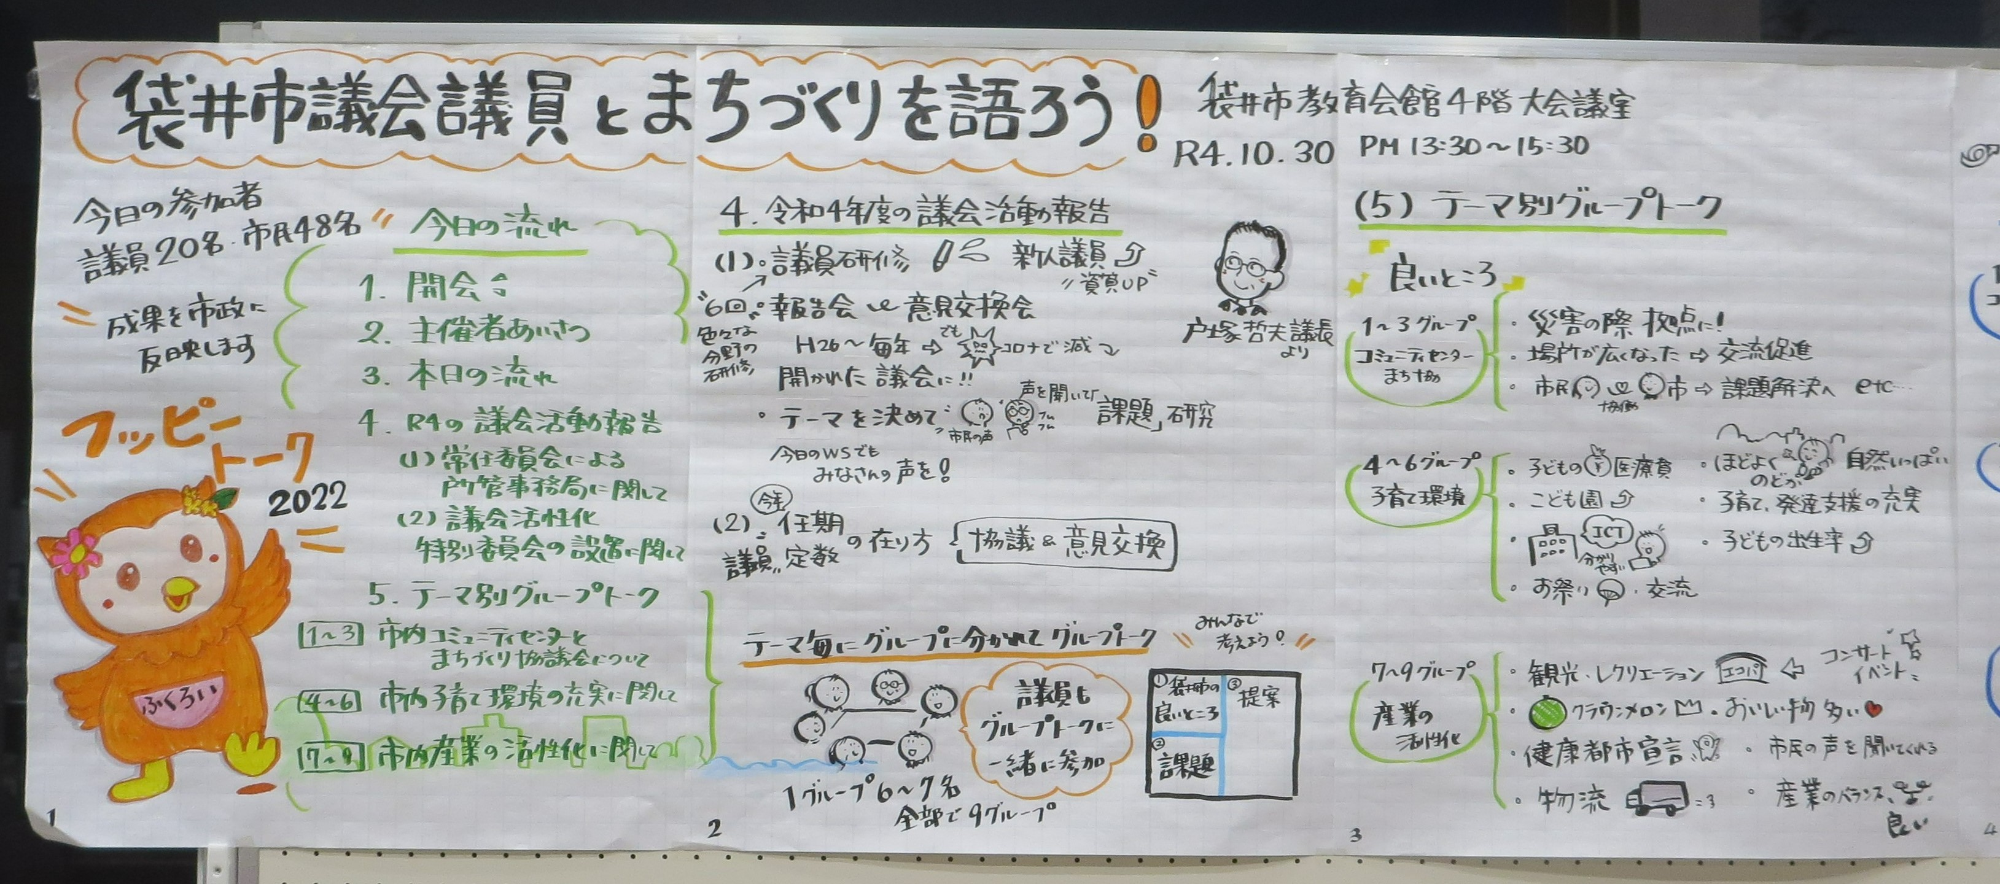 袋井市議会議員とまちづくりを語ろう!
袋井市教育会館4階大会議室
R4.10.30 PM13:30〜15:30
今日の参加者
議員20名・市民48名
成果を市政に
反映します
フッピー
トーク
2022
ふくろい
1
今日の流れ
1. 開会
2. 主催者あいさつ
3. 本日の流れ
4. R4の議会活動報告
(1) 常任委員会による
所管事務局に関して
(2) 議会活性化
特別委員会の設置に関して
5. テーマ別グループトーク
1~3 市内コミュニティセンターと
まちづくり協議会について
4~6 市内子育て環境の充実に関して
7~9 市内産業の活性化に関して
4. 令和4年度の議会活動報告
(1)。議員研修 新人議員
"資質UP"
"6回
色々な
分野の
研修
報告会 意見交換会
H26〜毎年⇨ でも コロナで減
開かれた議会に!!
・テーマを決めて 市民の声 声を聞いて フム フム 「課題」研究
今日のWSでも
みなさんの声を!
戸塚哲夫議長
より
(2) 今年 任期
議員 定数 の在り方 協議&意見交換
テーマ毎にグループに分かれてグループトーク
みんなで
考えよう!
議員も
グループトークに
一緒に参加
①袋井市の
良いところ
②課題
③提案
1グループ6〜7名
全部で9グループ
2
(5) テーマ別グループトーク
良いところ
1〜3グループ
コミュニティセンター
まち協
・災害の際 拠点に!
・場所が広くなった⇨交流促進
・市民 市⇨課題解決へ etc…
協働
4〜6グループ
子育て環境
・子どもの医療費
・こども園
・ICT
分かりやすい
・お祭り・交流
・ほどよく 自然いっぱい
のどか
・子育て、発達支援の充実
・子どもの出生率
7〜9グループ
産業の
活性化
・観光・レクリエーション エコパ ⇦ コンサート
イベント
・クラウンメロン ・おいしい物多い
・健康都市宣言 ・市民の声を聞いてくれる
・物流 ・産業のバランス
良い
3
4